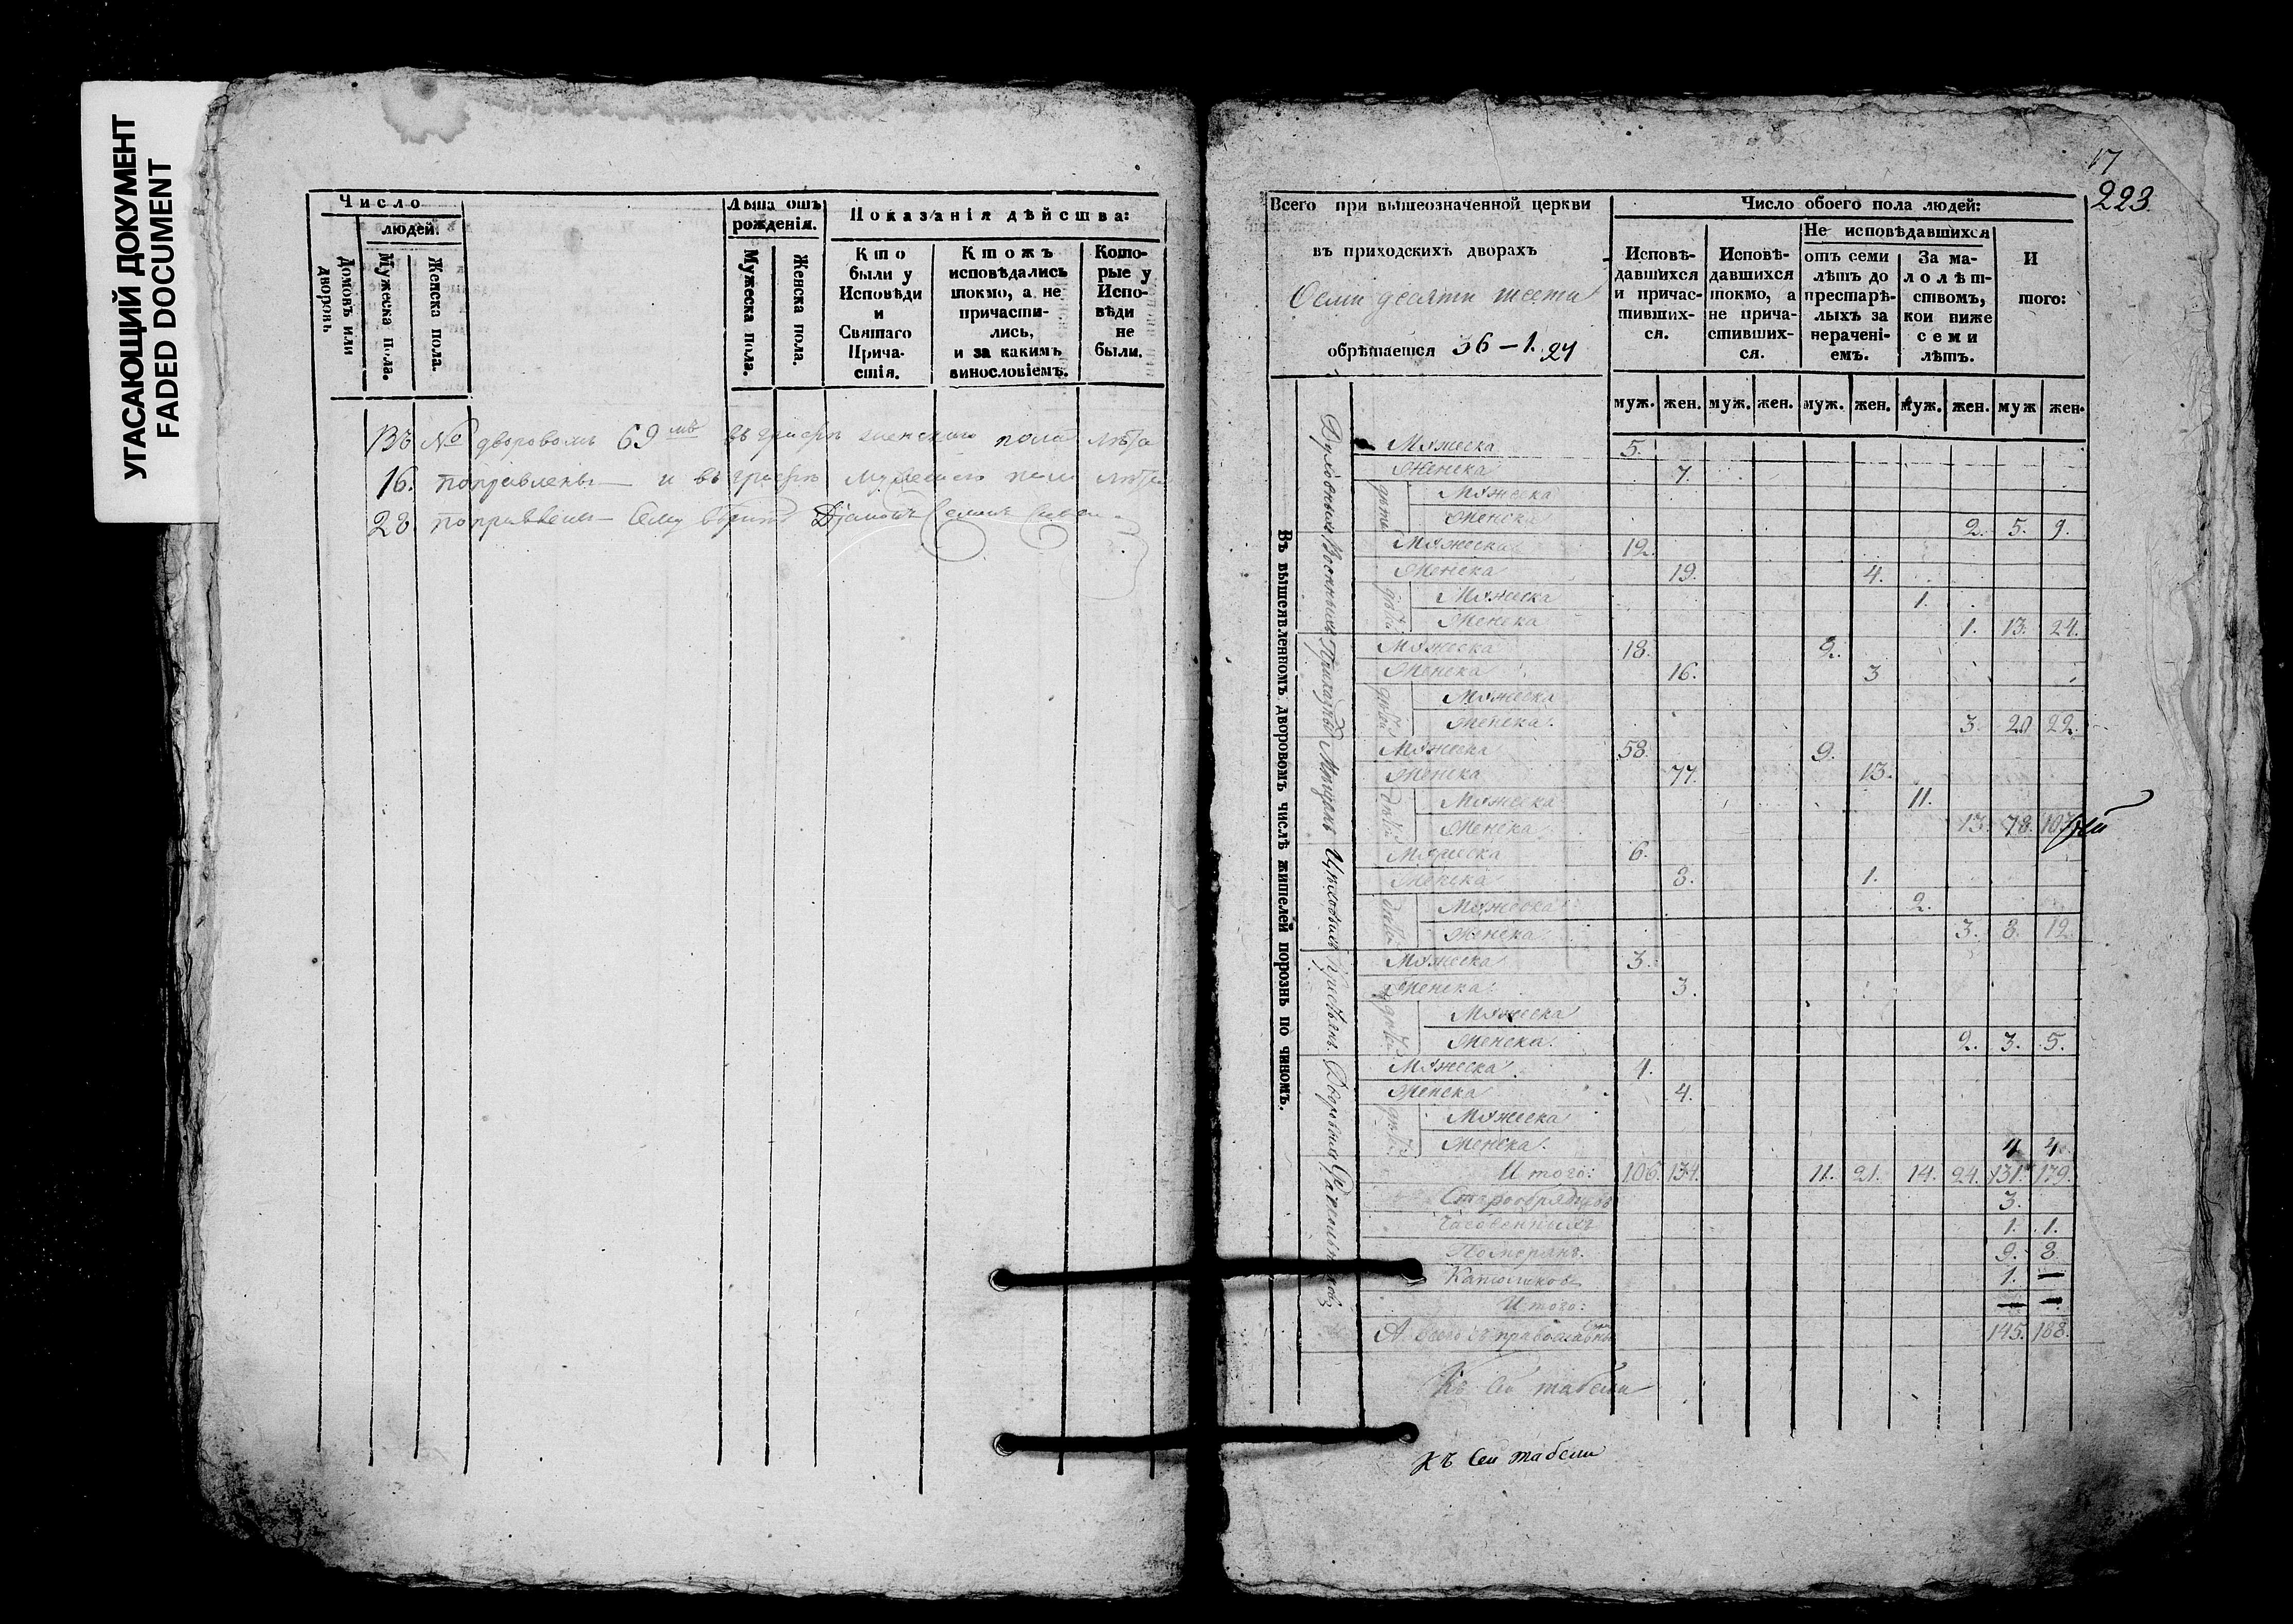 УГАСАЮЩИЙ ДОКУМЕНТ
FADED DOCUMENT
Число
людей.
Домовъ или дворовъ
Мужеска пола.
Женска пола.
Лѣта отъ рожденія.
Мужеска пола.
Женска пола.
Показанія дѣйства:
Кто были у Исповѣди и Святаго Причастія.
Ктожъ исповѣдались токмо, а не причастились, и за какимъ винословіемъ.
Которые у Исповѣди не были.
Въ № дворовомъ 69мъ въ графѣ женскаго пола лѣта
16. поправлены — и въ графѣ мужескаго пола лѣта
28 поправлены —
17
223.
Всего при вышеозначенной церкви
въ приходскихъ дворахъ
обрѣтается 36 – 1. 21
Число обоего пола людей:
Исповѣдавшихся и причастившихся.
Исповѣдавшихся токмо, а не причастившихся.
Не исповѣдавшихся
отъ семи лѣтъ до престарѣлыхъ за нерачені-емъ.
За малолѣтствомъ, кои ниже семи лѣтъ.
И того:
муж. жен. муж. жен. муж. жен. муж. жен. муж жен.
Въ вышеявленномъ дворовомъ числѣ жителей порознь по чиномъ.
Духовныхъ
Мужеска 5.
Женска 7.
дѣти
Мужеска
Женска 2. 5. 9.
Военныхъ
Мужеска 12.
Женска 19. 4.
дѣти
Мужеска 1.
Женска 1. 13. 24.
Мужеска 18. 2.
Женска 16. 3
дѣти
Мужеска
Женска 3. 20 22.
Мѣщанъ
Мужеска 58. 9.
Женска 77. 13.
дѣти
Мужеска 11.
Женска 13. 78. 103
Цѣховыхъ
Мужеска 6.
Женска 8. 1.
дѣти
Мужеска 2.
Женска 3. 8. 12.
Крестьянъ
Мужеска 3.
Женска 3.
дѣти
Мужеска
Женска 2. 3. 5.
Мужеска 4.
Женска 4.
дѣти
Мужеска
Женска 4 4
Итого: 106. 134. 11. 21. 14. 24. 131. 179.
Старообрядцовъ 3.
Часовенныхъ 1. 1.
Поморянъ. 9. 8
Католиковъ 1. —
Итого: — —
А всего съ православными 145. 188.
Къ сей табели
Къ сей табели